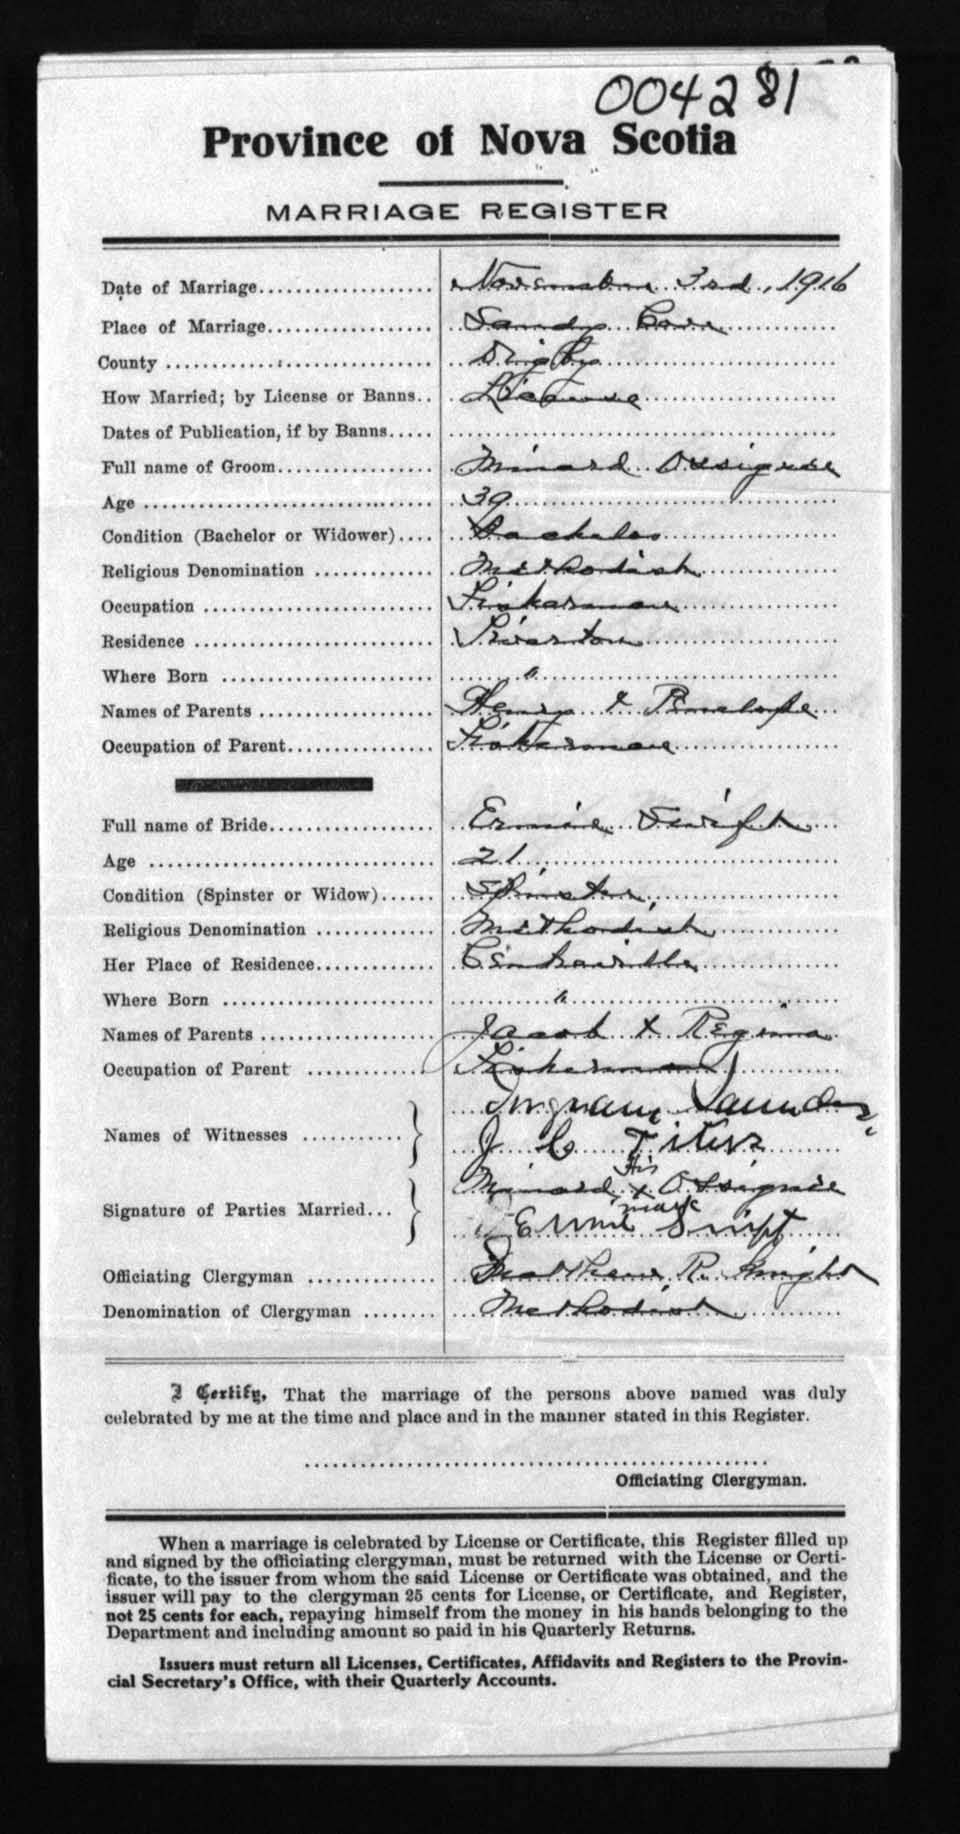 004281
Province of Nova Scotia
MARRIAGE REGISTER
Date of Marriage.................. November 3rd, 1916
Place of Marriage................. Sandy Cove
County ........................... Digby
How Married; by License or Banns.. License
Dates of Publication, if by Banns.....
Full name of Groom................ Minard Ossiguise
Age .............................. 39
Condition (Bachelor or Widower).... Bachelor
Religious Denomination ............. Methodist
Occupation ....................... Fisherman
Residence ........................ Tiverton
Where Born ....................... "
Names of Parents ................. Henry & Penelope
Occupation of Parent.............. Fisherman
Full name of Bride................ Ermie Swift
Age .............................. 21
Condition (Spinster or Widow)...... Spinster
Religious Denomination ............ Methodist
Her Place of Residence............ Centreville
Where Born ....................... "
Names of Parents ................. Jacob & Regina
Occupation of Parent ............. Fisherman
Names of Witnesses ........... Ingram Saunders
J C Titus
His
Signature of Parties Married... Minard x Ossiguise
mark
Ermie Swift
Officiating Clergyman ............. Matthew R. Knight
Denomination of Clergyman ........ Methodist
I Certify, That the marriage of the persons above named was duly
celebrated by me at the time and place and in the manner stated in this Register.
Officiating Clergyman.
When a marriage is celebrated by License or Certificate, this Register filled up
and signed by the officiating clergyman, must be returned with the License or Certi-
ficate, to the issuer from whom the said License or Certificate was obtained, and the
issuer will pay to the clergyman 25 cents for License, or Certificate, and Register,
not 25 cents for each, repaying himself from the money in his hands belonging to the
Department and including amount so paid in his Quarterly Returns.
Issuers must return all Licenses, Certificates, Affidavits and Registers to the Provin-
cial Secretary's Office, with their Quarterly Accounts.